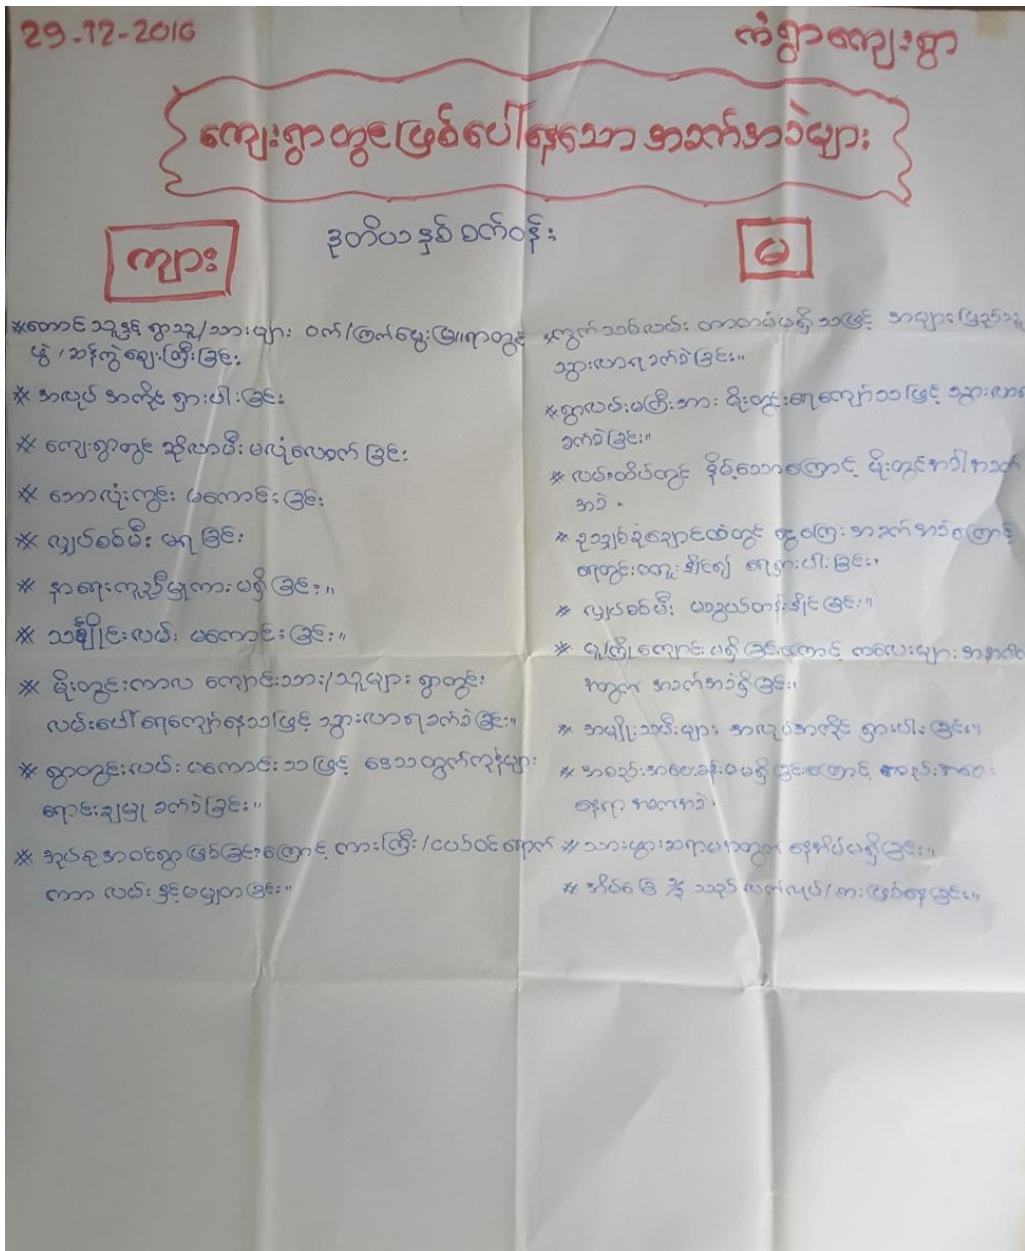 29-12-2016
ကံရွာကျေးရွာ
ကျေးရွာတွင်ဖြစ်ပေါ်နေသော အခက်အခဲများ
ဒုတိယနှစ် စက်ဝန်း
ကျား
* တောင်သူနှင့် ရွာသူ/သားများ ဝက်/ကြက်မွေးမြူရာတွင်
ဖွဲ/ဆန်ကွဲ ဈေးကြီးခြင်း
* အလုပ် အကိုင် ရှားပါးခြင်း
* ကျေးရွာတွင် ဆိုလာမီး မလုံလောက်ခြင်း
* ဘောလုံးကွင်း မကောင်းခြင်း
* လျှပ်စစ်မီး မရခြင်း
* နာရေးကူညီမှုကား မရှိခြင်း။
* သင်္ချိုင်းလမ်း မကောင်းခြင်း။
* မိုးတွင်းကာလ ကျောင်းသား/သူများ ရွာတွင်း
လမ်းပေါ် ရေကျော်နေသဖြင့် သွားလာရခက်ခဲခြင်း။
* ရွာတွင်းလမ်း မကောင်းသဖြင့် ဒေသထွက်ကုန်များ
ရောင်းချမှု ခက်ခဲခြင်း။
* အုပ်စုအဝင်ရွာ ဖြစ်ခြင်းကြောင့် ကားကြီး/ငယ်ဝင်ရောက်
ကာ လမ်းနှင့်မမျှတခြင်း။
မ
* ကွက်သစ်လမ်း တာတမံမရှိသဖြင့် အများပြည်သူ
သွားလာရခက်ခဲခြင်း။
* ရွာလမ်းမကြီးအား မိုးတွင်းရေကျော်သဖြင့် သွားလာရ
ခက်ခဲခြင်း။
* လမ်းထိပ်တွင် နိမ့်သောကြောင့် မိုးတွင်းအခါ အခက်
အခဲ။
* ဥသျှစ်ခုံချောင်ထဲတွင် ငွေကြေး အခက်အခဲကြောင့်
ရေတွင်းမတူးနိုင်၍ ရေရှားပါးခြင်း။
* လျှပ်စစ်မီး မသွယ်တန်းနိုင်ခြင်း။
* မူကြိုကျောင်းမရှိခြင်းကြောင့် ကလေးများ အနာဂတ်
အတွက် အခက်အခဲရှိခြင်း။
* အမျိုးသမီးများ အလုပ်အကိုင် ရှားပါးခြင်း။
* အစည်းအဝေးခန်းမမရှိခြင်းကြောင့် အစည်းအဝေး
နေရာ အခက်အခဲ။
* သားဖွားဆရာမအတွက် နေအိမ်မရှိခြင်း။
* အိမ်ခြေ ¾ သည် လက်လုပ်/စား ဖြစ်နေခြင်း။